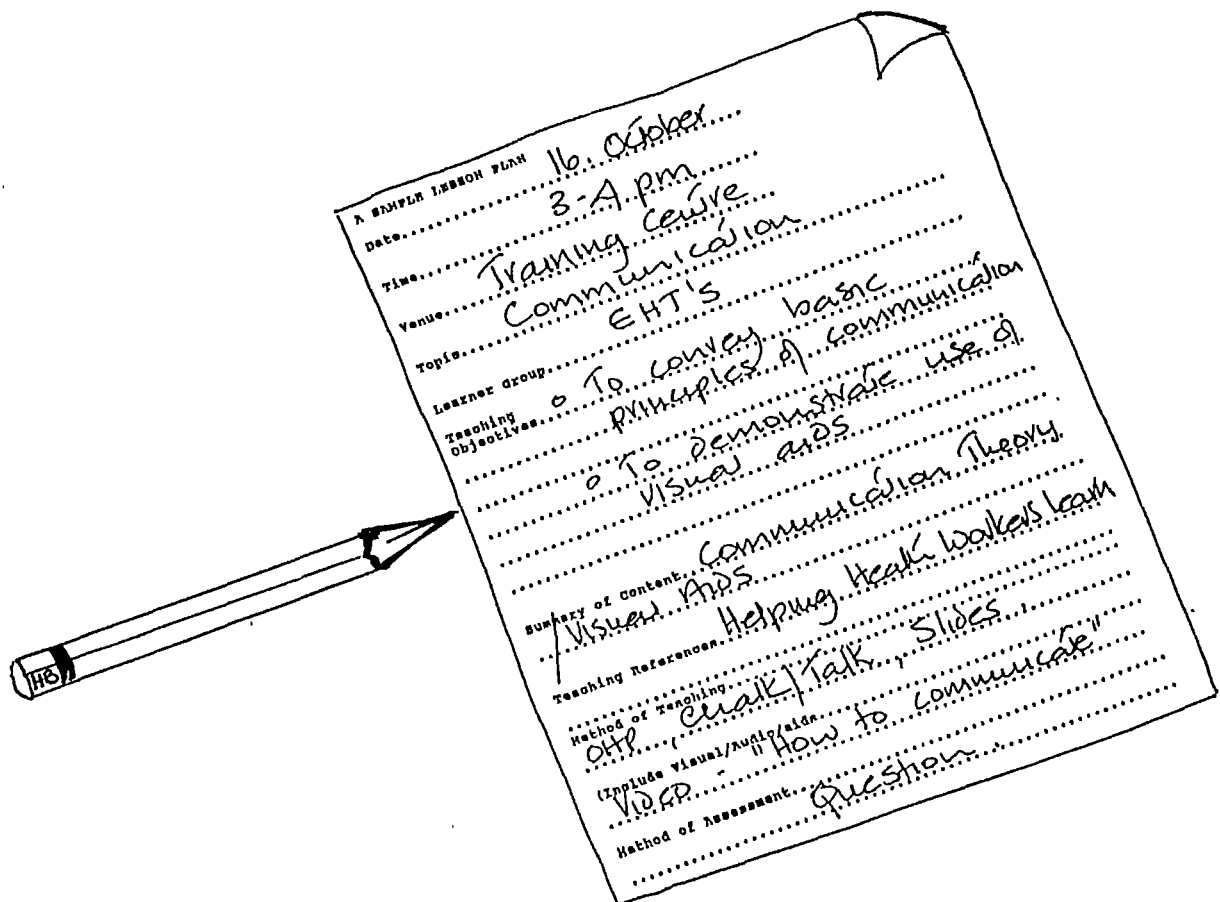 A SAMPLE LESSON PLAN
Date 16. October
Time 3-4 pm
Venue Training Centre
Topic Communication
Learner Group EHT'S
Teaching
Objectives o To convey basic
principles of communication
o To Demonstrate use of
Visual AIDS
Summary of Content Communication Theory
/Visual AIDS
Teaching References Helping Health Workers Learn
Method of Teaching
OHP, Chalk/Talk, Slides
(Include Visual/Audio/aids
VIDEO - "How to communicate"
Method of Assessment Question
HB